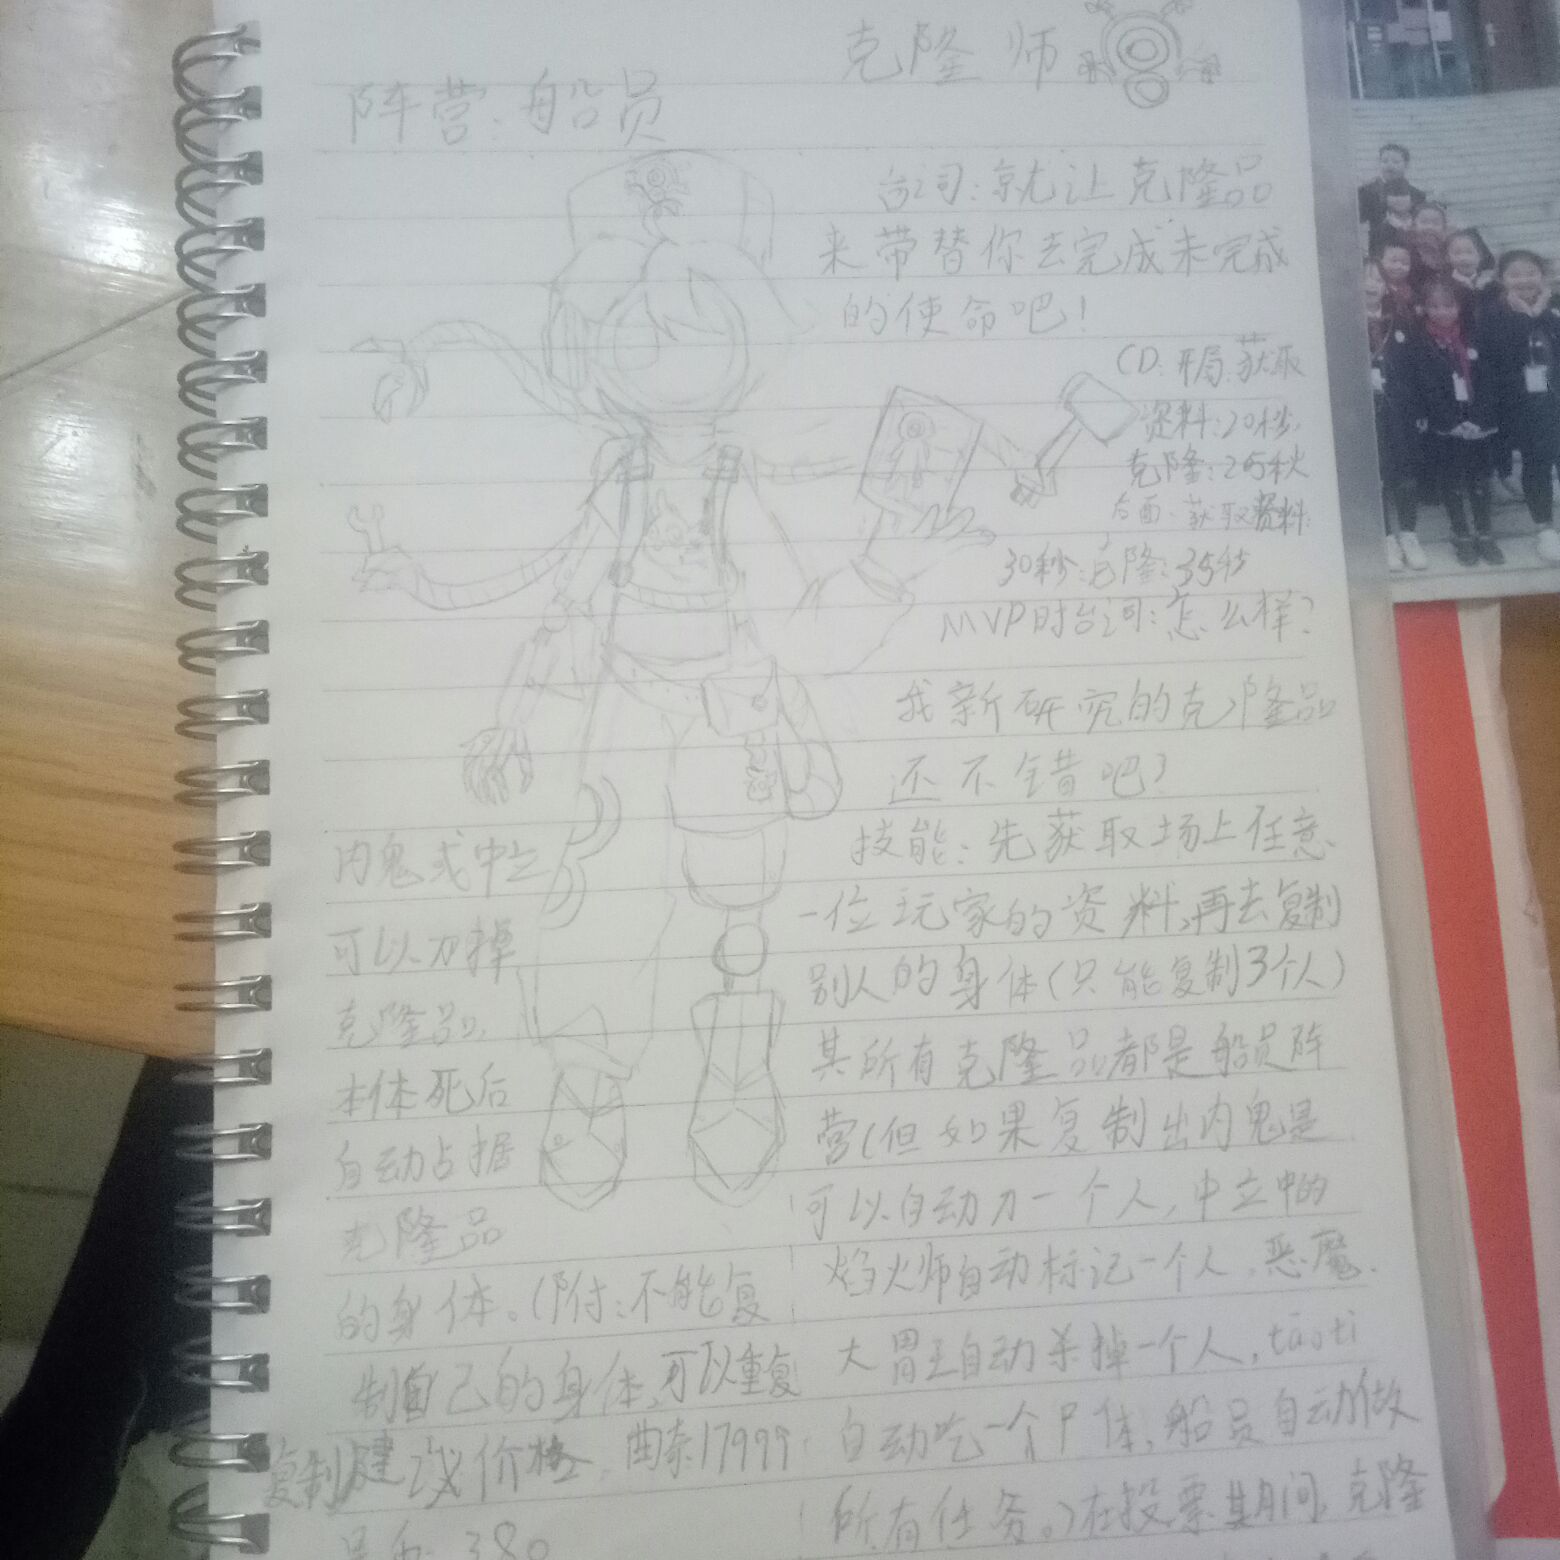 克隆师
阵营：船员
台词：就让克隆品
来带替你去完成未完成
的使命吧！
CD：开局：获取
资料：20秒，
克隆：25秒
后面：获取资料：
30秒；克隆：35秒
MVP时台词：怎么样？
我新研究的克隆品
还不错吧？
技能：先获取场上任意
一位玩家的资料，再去复制
别人的身体（只能复制3个人）
其所有克隆品都是船员阵
营（但如果复制出内鬼是
可以自动刀一个人，中立中的
焰火师自动标记一个人，恶魔、
大胃王自动杀掉一个人，tāotì
自动吃一个尸体，船员自动做
所有任务。）在投票其期间，克隆
内鬼或中立
可以刀掉
克隆品，
本体死后
自动占据
克隆品
的身体。（附：不能复
制自己的身体，可以重复
复制）建议价格：曲奇17999
380